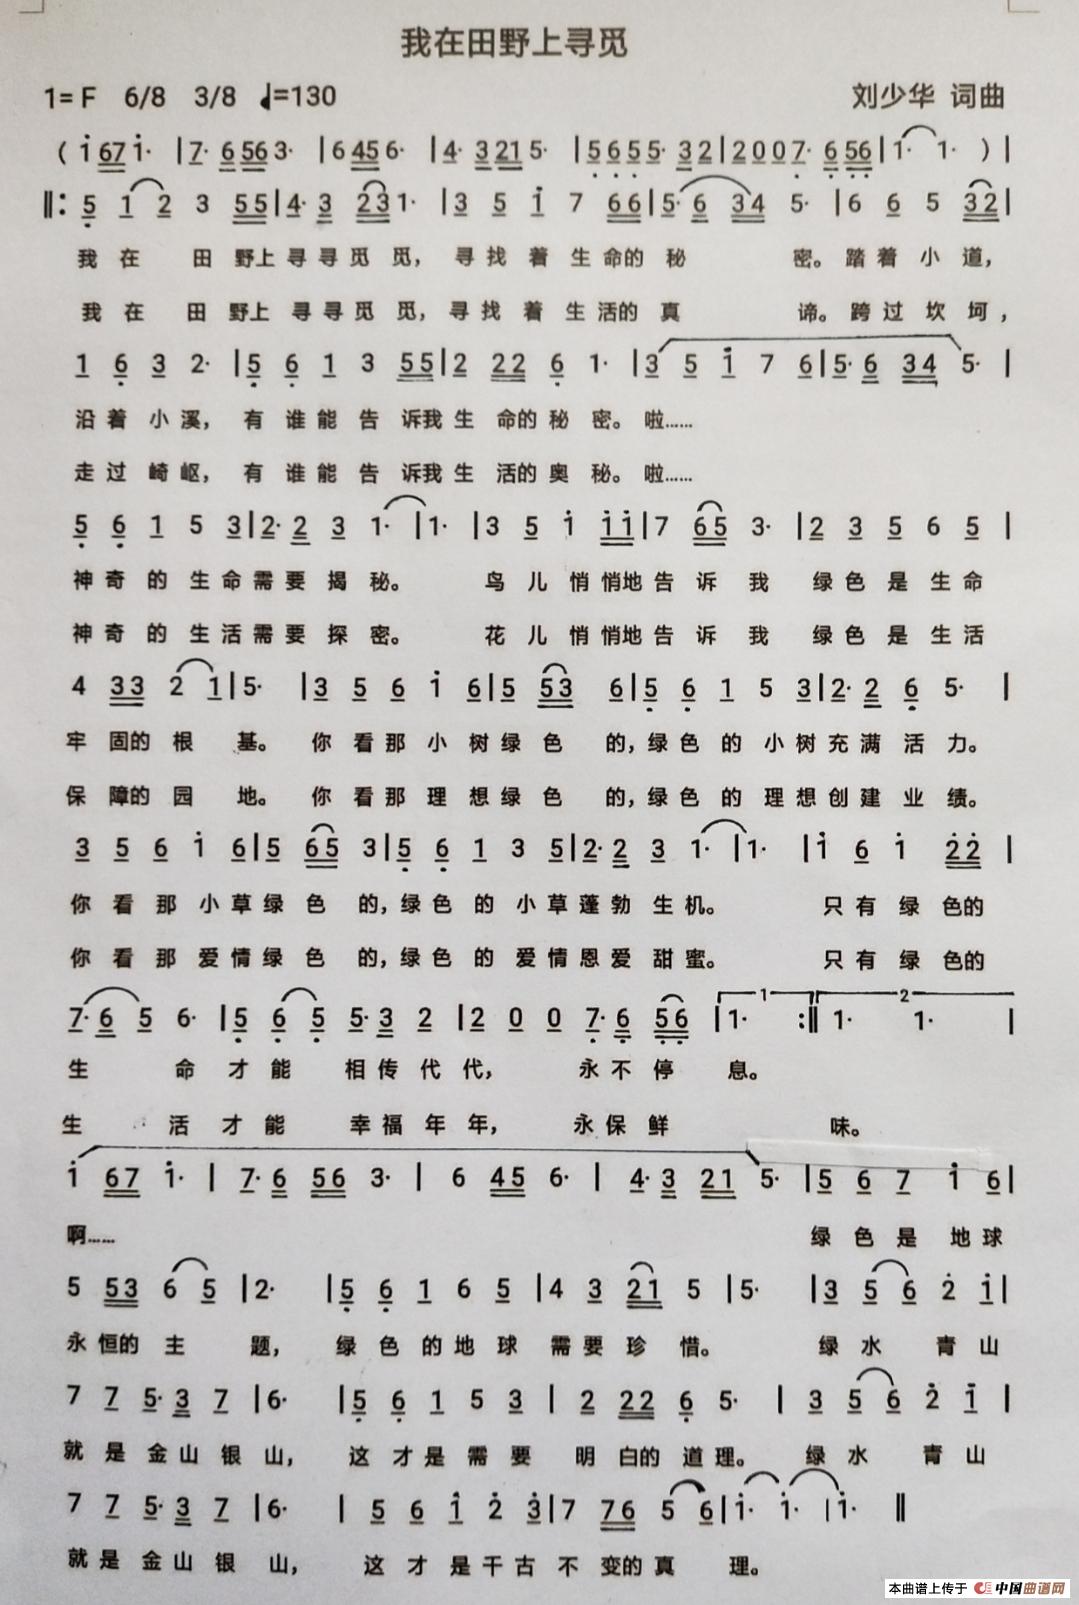 我在田野上寻觅
1= F 6/8 3/8 ♩=130 刘少华 词曲
( i 67 i· | 7· 6 56 3· | 6 45 6· | 4· 3 21 5· | 5 6 5 5· 3 2 | 2 0 0 7· 6 56 | 1· 1· ) |
‖: 5 1 2 3 55 | 4· 3 23 1· | 3 5 i 7 66 | 5· 6 34 5· | 6 6 5 32 |
我 在 田 野上 寻 寻 觅 觅， 寻 找 着 生 命的 秘 密。 踏 着 小 道，
我 在 田 野上 寻 寻 觅 觅， 寻 找 着 生 活的 真 谛。 跨 过 坎 坷，
1 6 3 2· | 5 6 1 3 55 | 2 22 6 1· | 3 5 i 7 6 | 5· 6 34 5· |
沿 着 小 溪， 有 谁 能 告 诉我 生 命的 秘 密。 啦……
走 过 崎 岖， 有 谁 能 告 诉我 生 活的 奥 秘。 啦……
5 6 1 5 3 | 2· 2 3 1· | 1· | 3 5 i ii | 7 65 3· | 2 3 5 6 5 |
神 奇 的 生 命 需 要 揭 秘。 鸟 儿 悄 悄地 告 诉 我 绿 色 是 生 命
神 奇 的 生 活 需 要 探 密。 花 儿 悄 悄地 告 诉 我 绿 色 是 生 活
4 33 2 1 | 5· | 3 5 6 i 6 | 5 53 6 | 5 6 1 5 3 | 2· 2 6 5· |
牢 固的 根 基。 你 看 那 小 树 绿 色 的，绿 色 的 小 树 充 满 活 力。
保 障的 园 地。 你 看 那 理 想 绿 色 的，绿 色 的 理 想 创 建 业 绩。
3 5 6 i 6 | 5 65 3 | 5 6 1 3 5 | 2· 2 3 1· | 1· | i 6 i 22 |
你 看 那 小 草 绿 色 的，绿 色 的 小 草 蓬 勃 生 机。 只 有 绿 色的
你 看 那 爱 情 绿 色 的，绿 色 的 爱 情 恩 爱 甜 蜜。 只 有 绿 色的
7· 6 5 6· | 5 6 5 5· 3 2 | 2 0 0 7· 6 56 | 1 1· :‖ 2 1· 1· |
生 命 才 能 相 传 代 代， 永 不 停 息。
生 活 才 能 幸 福 年 年， 永 保 鲜 味。
i 67 i· | 7· 6 56 3· | 6 45 6· | 4· 3 21 5· | 5 6 7 i 6 |
啊…… 绿 色 是 地 球
5 53 6 5 | 2· | 5 6 1 6 5 | 4 3 21 5 | 5· | 3 5 6 2 i |
永 恒的 主 题， 绿 色 的 地 球 需 要 珍 惜。 绿 水 青 山
7 7 5· 3 7 | 6· | 5 6 1 5 3 | 2 22 6 5· | 3 5 6 2 i |
就 是 金 山 银 山， 这 才 是 需 要 明 白的 道 理。 绿 水 青 山
7 7 5· 3 7 | 6· | 5 6 i 2 3 | 7 76 5 6 | i· i· | i· ‖
就 是 金 山 银 山， 这 才 是 千 古 不 变的 真 理。
本曲谱上传于 中国曲谱网